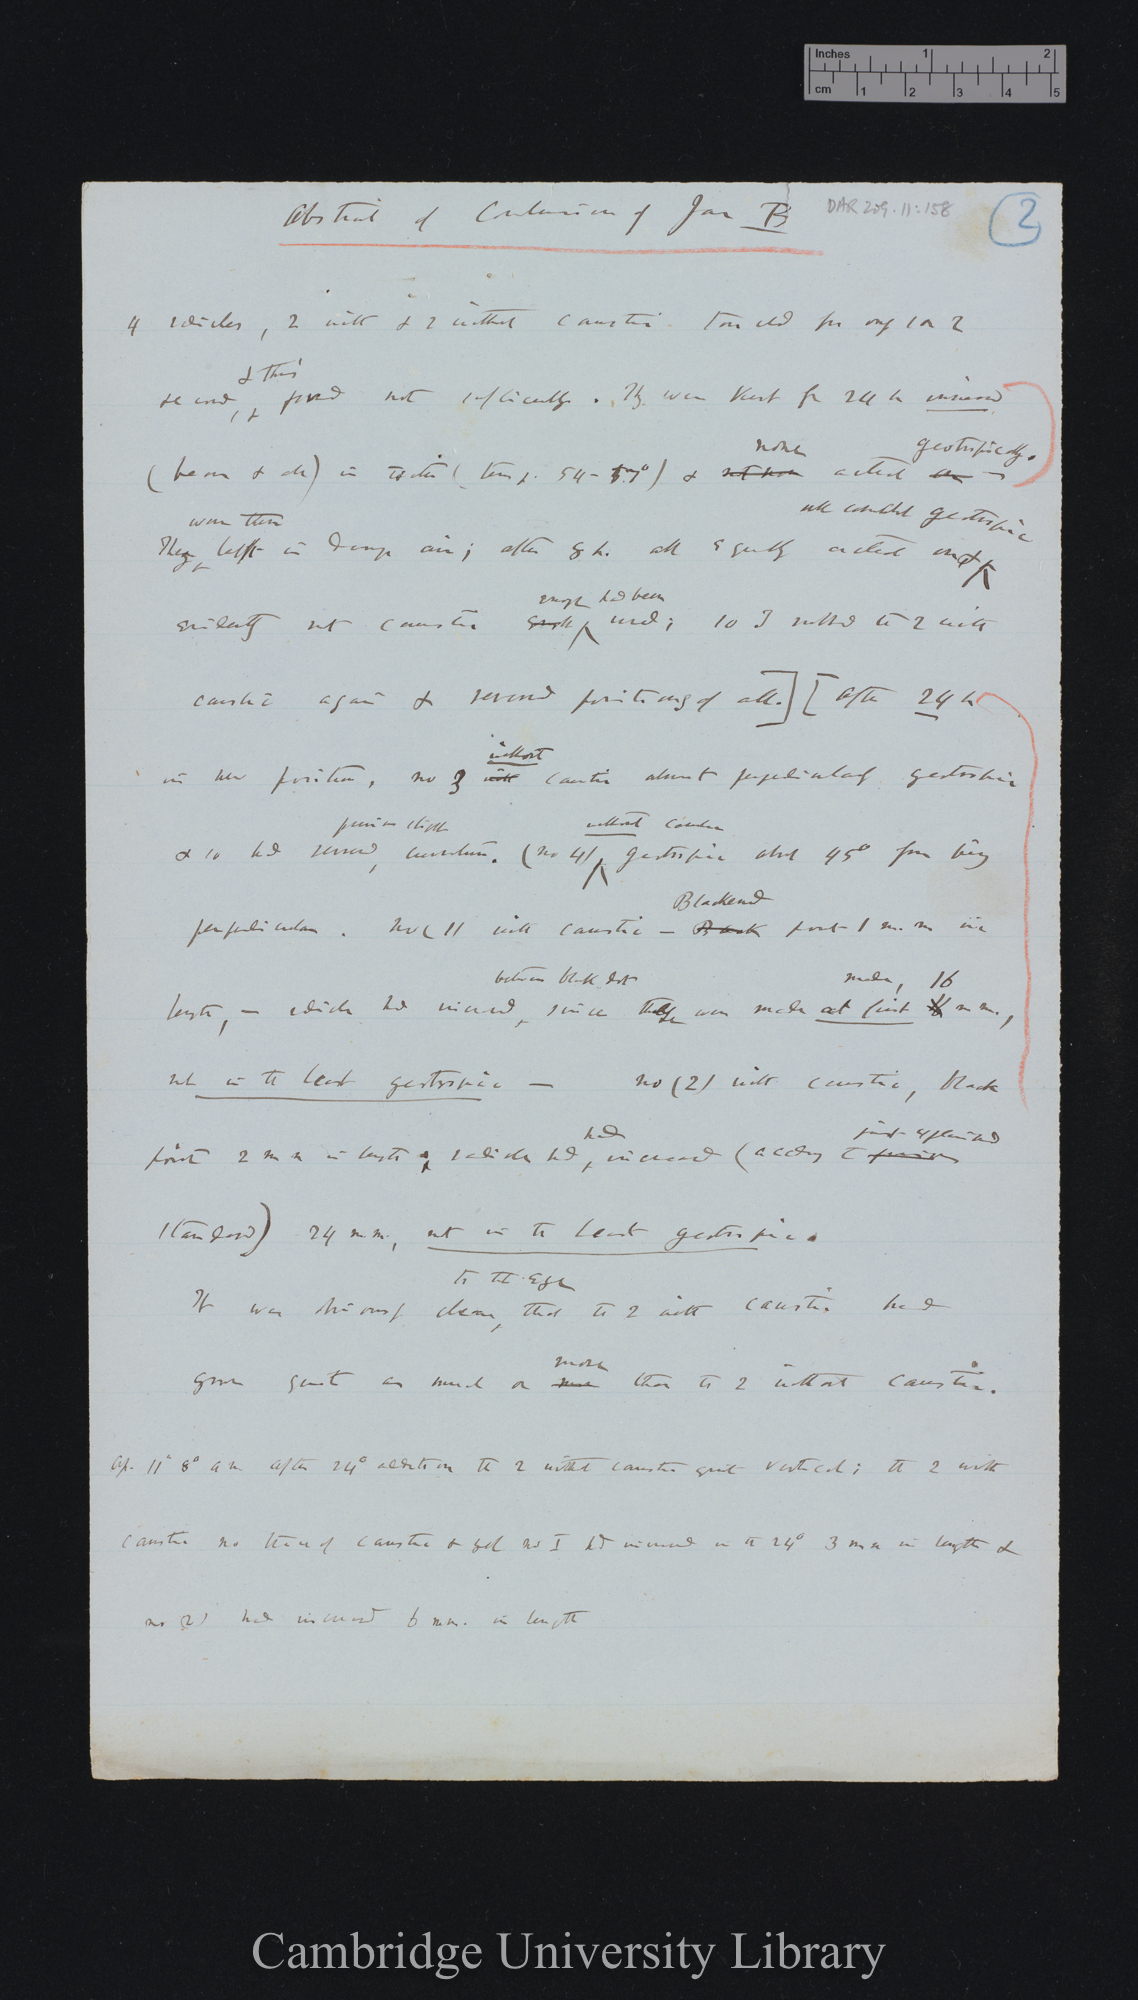 Inches 1 2
cm 1 2 3 4 5
Abstract of Conclusion of Jar B
DAR 209.11:158
2
4 radicles, 2 with & 2 without caustic. Touched for only 1 or 2
& this
second, & found not sufficiently. They were kept for 24 h
none geotropically.
(beans & all) in water (temp. 54-57°) & not acted
were then all rather geotropic
They left in damp air; after 8 h. all equally acted on &
enough had been
evidently not caustic used; so I rubbed the 2 with
caustic again & reversed positions of all.] [After 24 h
without
in new position, no 3 with caustic almost perpendicularly geotropic
previous slight without caustic
& so had reversed, curvature. (no 4) geotropic about 45° from being
Blackened
perpendicular. No (1) with caustic — Black point 1 m.m in
between black dots made, 16
length, — radicle had increased, since these were made at first m m.,
not in the least geotropic — no (2) with caustic, black
had just explained
point 2 m m in length, radicle had, increased (according to previous
standard) 24 m m., not in the least geotropic.
to the eye
It was obviously clear, that the 2 with caustic had
more
grown quite as much or more than the 2 without caustic.
Ap. 11° 8° a m after 24° addition the 2 without caustic quite vertical; the 2 with
caustic no trace of caustic & yet no I had increased in the 24° 3 m m in length &
no 2) had increased 6 m m. in length
Cambridge University Library